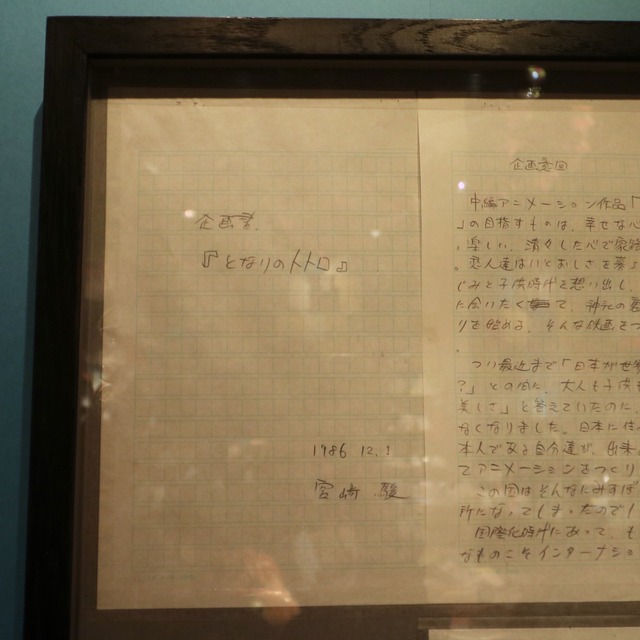 企画書
『となりのトトロ』
1986 12.1
宮崎 駿
企画意図
中編アニメーション作品「
」の目指すものは、幸せな心
優しい、清々した心で家路
。恋人達はいとおしさを募ら
じみと子供時代を想い出し、
に会いたくて、神社の裏
りを始める、そんな映画をつ
。
つい最近まで「日本が世界
?」との問に、大人も子供も
美しさ」と答えていたのに、
なくなりました。日本に住
本人である自分達が、出来
てアニメーションをつくり
この国はそんなにみすぼ
所になってしまったのでし
国際化時代にあって、も
なものこそインターナショ